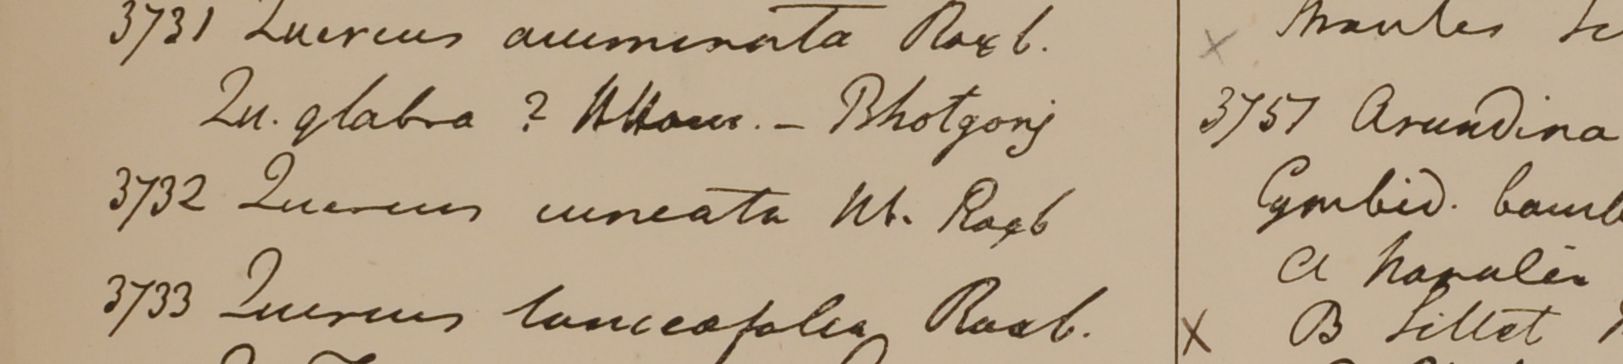 3731 Quercus acuminata Roxb.
Qu. glabra ? – Bhotgong
3732 Quercus cuneata Hb. Roxb
3733 Quercus lanceafolia Roxb.
3757 Arundina
Cymbid. bamb
a Napalia
B Sillet